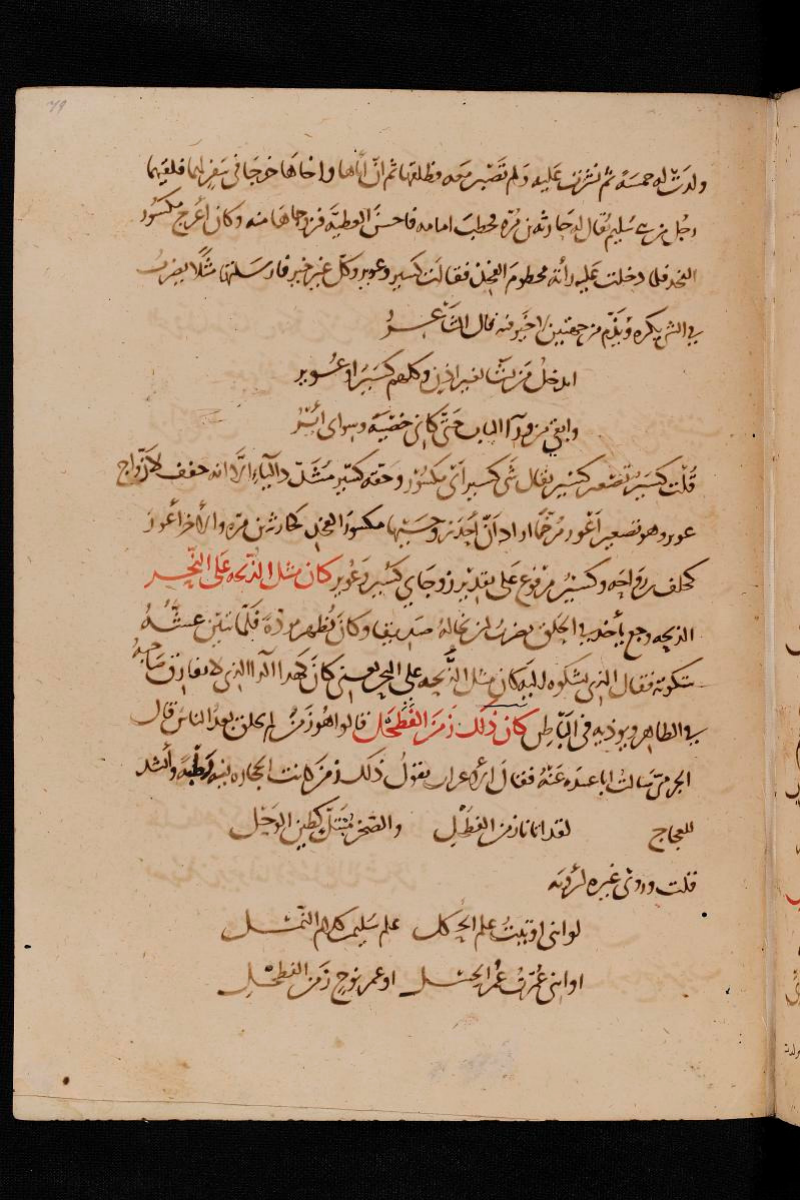 ولدت له خمسة ثم نشزت عليه ولم تصبر معه فطلقها ثم ان اباها واخاها خرجا في سفر لهما فلقيهما
رجل من بني سليم يقال له حارثة بن مرة فخطب امامه فاحسن العطية فزوجاها منه وكان اعرج مكسور
الفخذ فلما دخلت عليه رأته محطوم الفخذ فقالت كسير وعوير وكل غير خير فارسلتها مثلا يضرب
في الشي يكره ويذم من جهتين لا خير فيه قال الشاعر
ايدخل من يشا بغير اذن وكلهم كسير او عوير
وابقى من ورآ الباب حتى كانى خصية وسواى اير
قلت كسير تصغير كسير يقال شى كسير اى مكسور وحقه كسير مشدد الياء الا انه خفف لازدواج
عوير وهو تصغير اعور مرخما اراد ان احد زوجيها مكسور الفخذ كحارثة بن مرة والاخر اعور
كخلف بن رواحه وكسير مرفوع على تقدير زوجاي كسير وعوير كان مثل الذبحه على النحر
الذبحه وجع يأخذ في الحلق يضرب لمن تخاله صديقا وكان يظهر مودة فلما تبين غشه
شكوته فقال الذى تشكوه اليه كان مثل الذبحه على النحر يعنى كان كهذا الدا الذى لا يفارق صاحبه
في الظاهر ويوذيه فى الباطن كان ذلك زمن الفطحل قالوا هو زمن لم يخلق بعد الناس قال
الجرمى سالت ابا عبيده عنه فقال الاعراب يقول ذلك زمن كانت الحجاره فيه رطبة وانشد
للعجاج لقد اتانا زمن الفطحل والصخر مبتل كطين الوحل
قلت وروى غيره لرؤبه
لو اننى اوتيت علم الحكل علم سليمن كلام النمل
او اننى عمرت عمر الحسل او عمر نوح زمن الفطحل